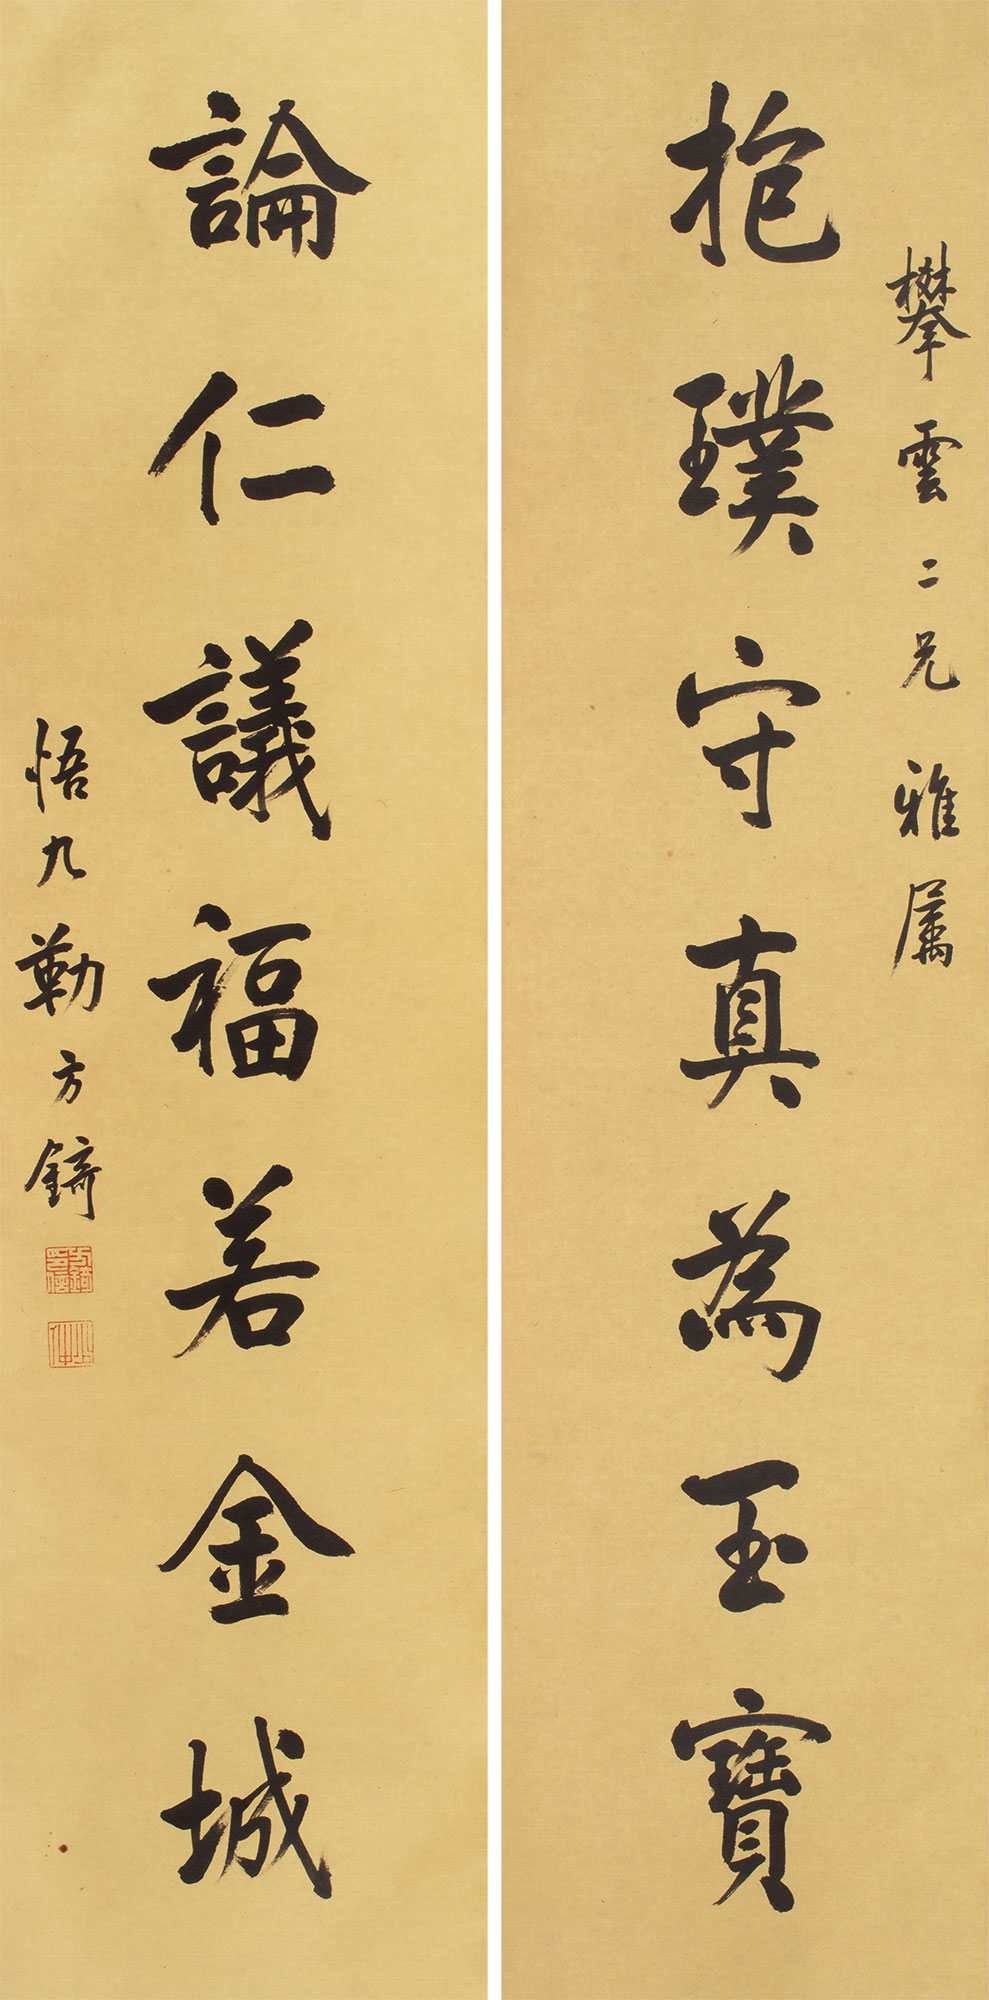 攀雲二兄雅属
抱璞守真為玉寶
論仁議福若金城
悟九勒方錡